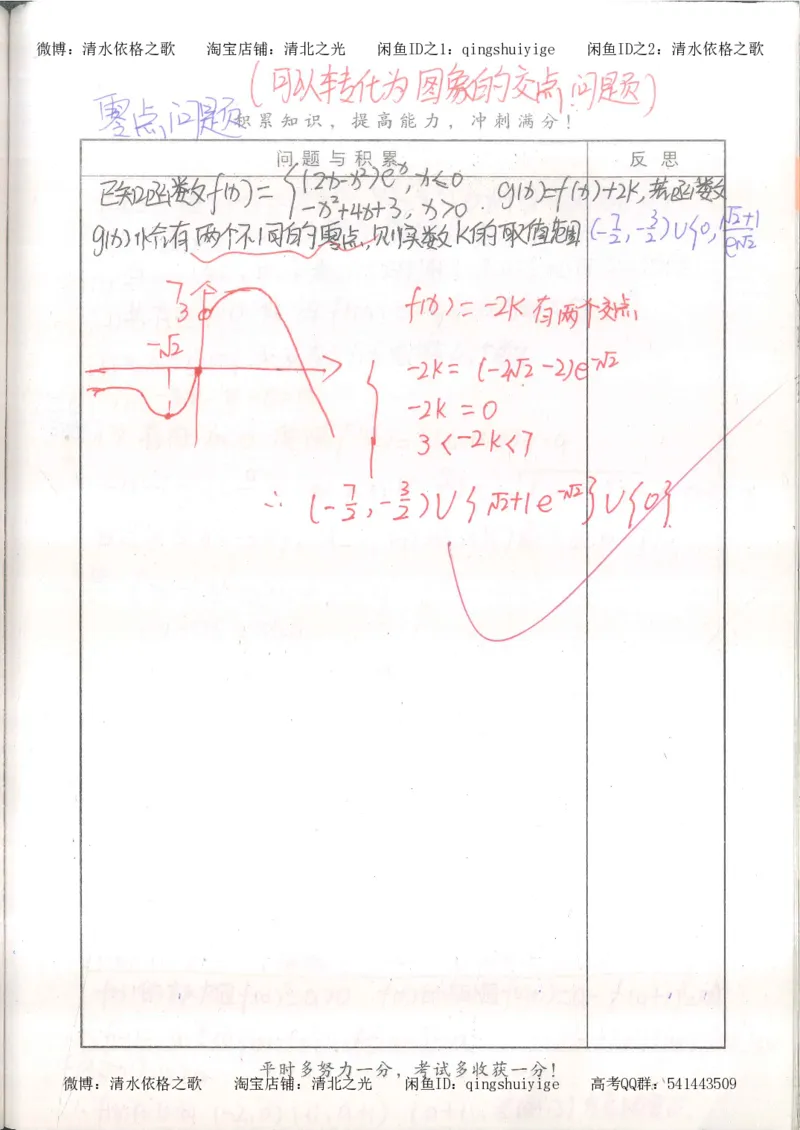 微博：清水依格之歌 淘宝店铺：清北之光 闲鱼ID之1：qingshuiyige 闲鱼ID之2：清水依格之歌
(可以转化为图象的交点问题)
零点问题
积累知识，提高能力，冲刺满分！
问题与积累 反思
已知函数f(x)={(2x-x²)eˣ, x≤0
-x²+4x+3, x>0. g(x)=f(x)+2k, 若函数
g(x)恰有两个不同的零点,则实数k的取值范围 (-7/2,-3/2)∪{0, √2+1/e√2
7
3
-√2
f(x)=-2k有两个交点
-2k=(-2√2-2)e^-√2
-2k=0
3<-2k<7
∴ (-7/2,-3/2)∪{√2+1e^-√2}∪{0}
平时多努力一分，考试多收获一分！
微博：清水依格之歌 淘宝店铺：清北之光 闲鱼ID：qingshuiyige 高考QQ群：541443509